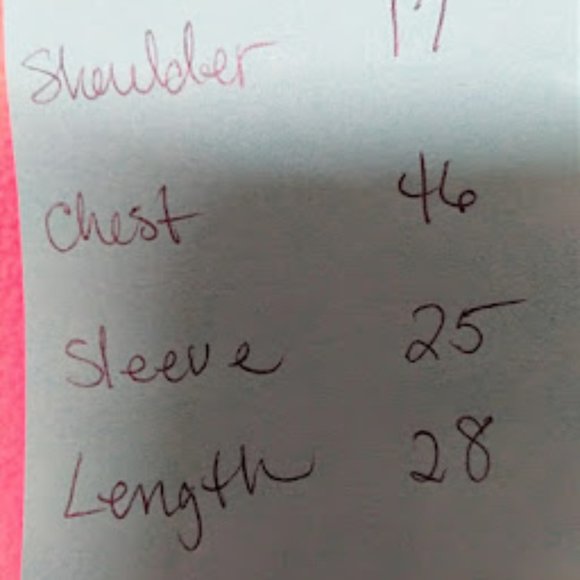 Shoulder 17
Chest 46
Sleeve 25
Length 28